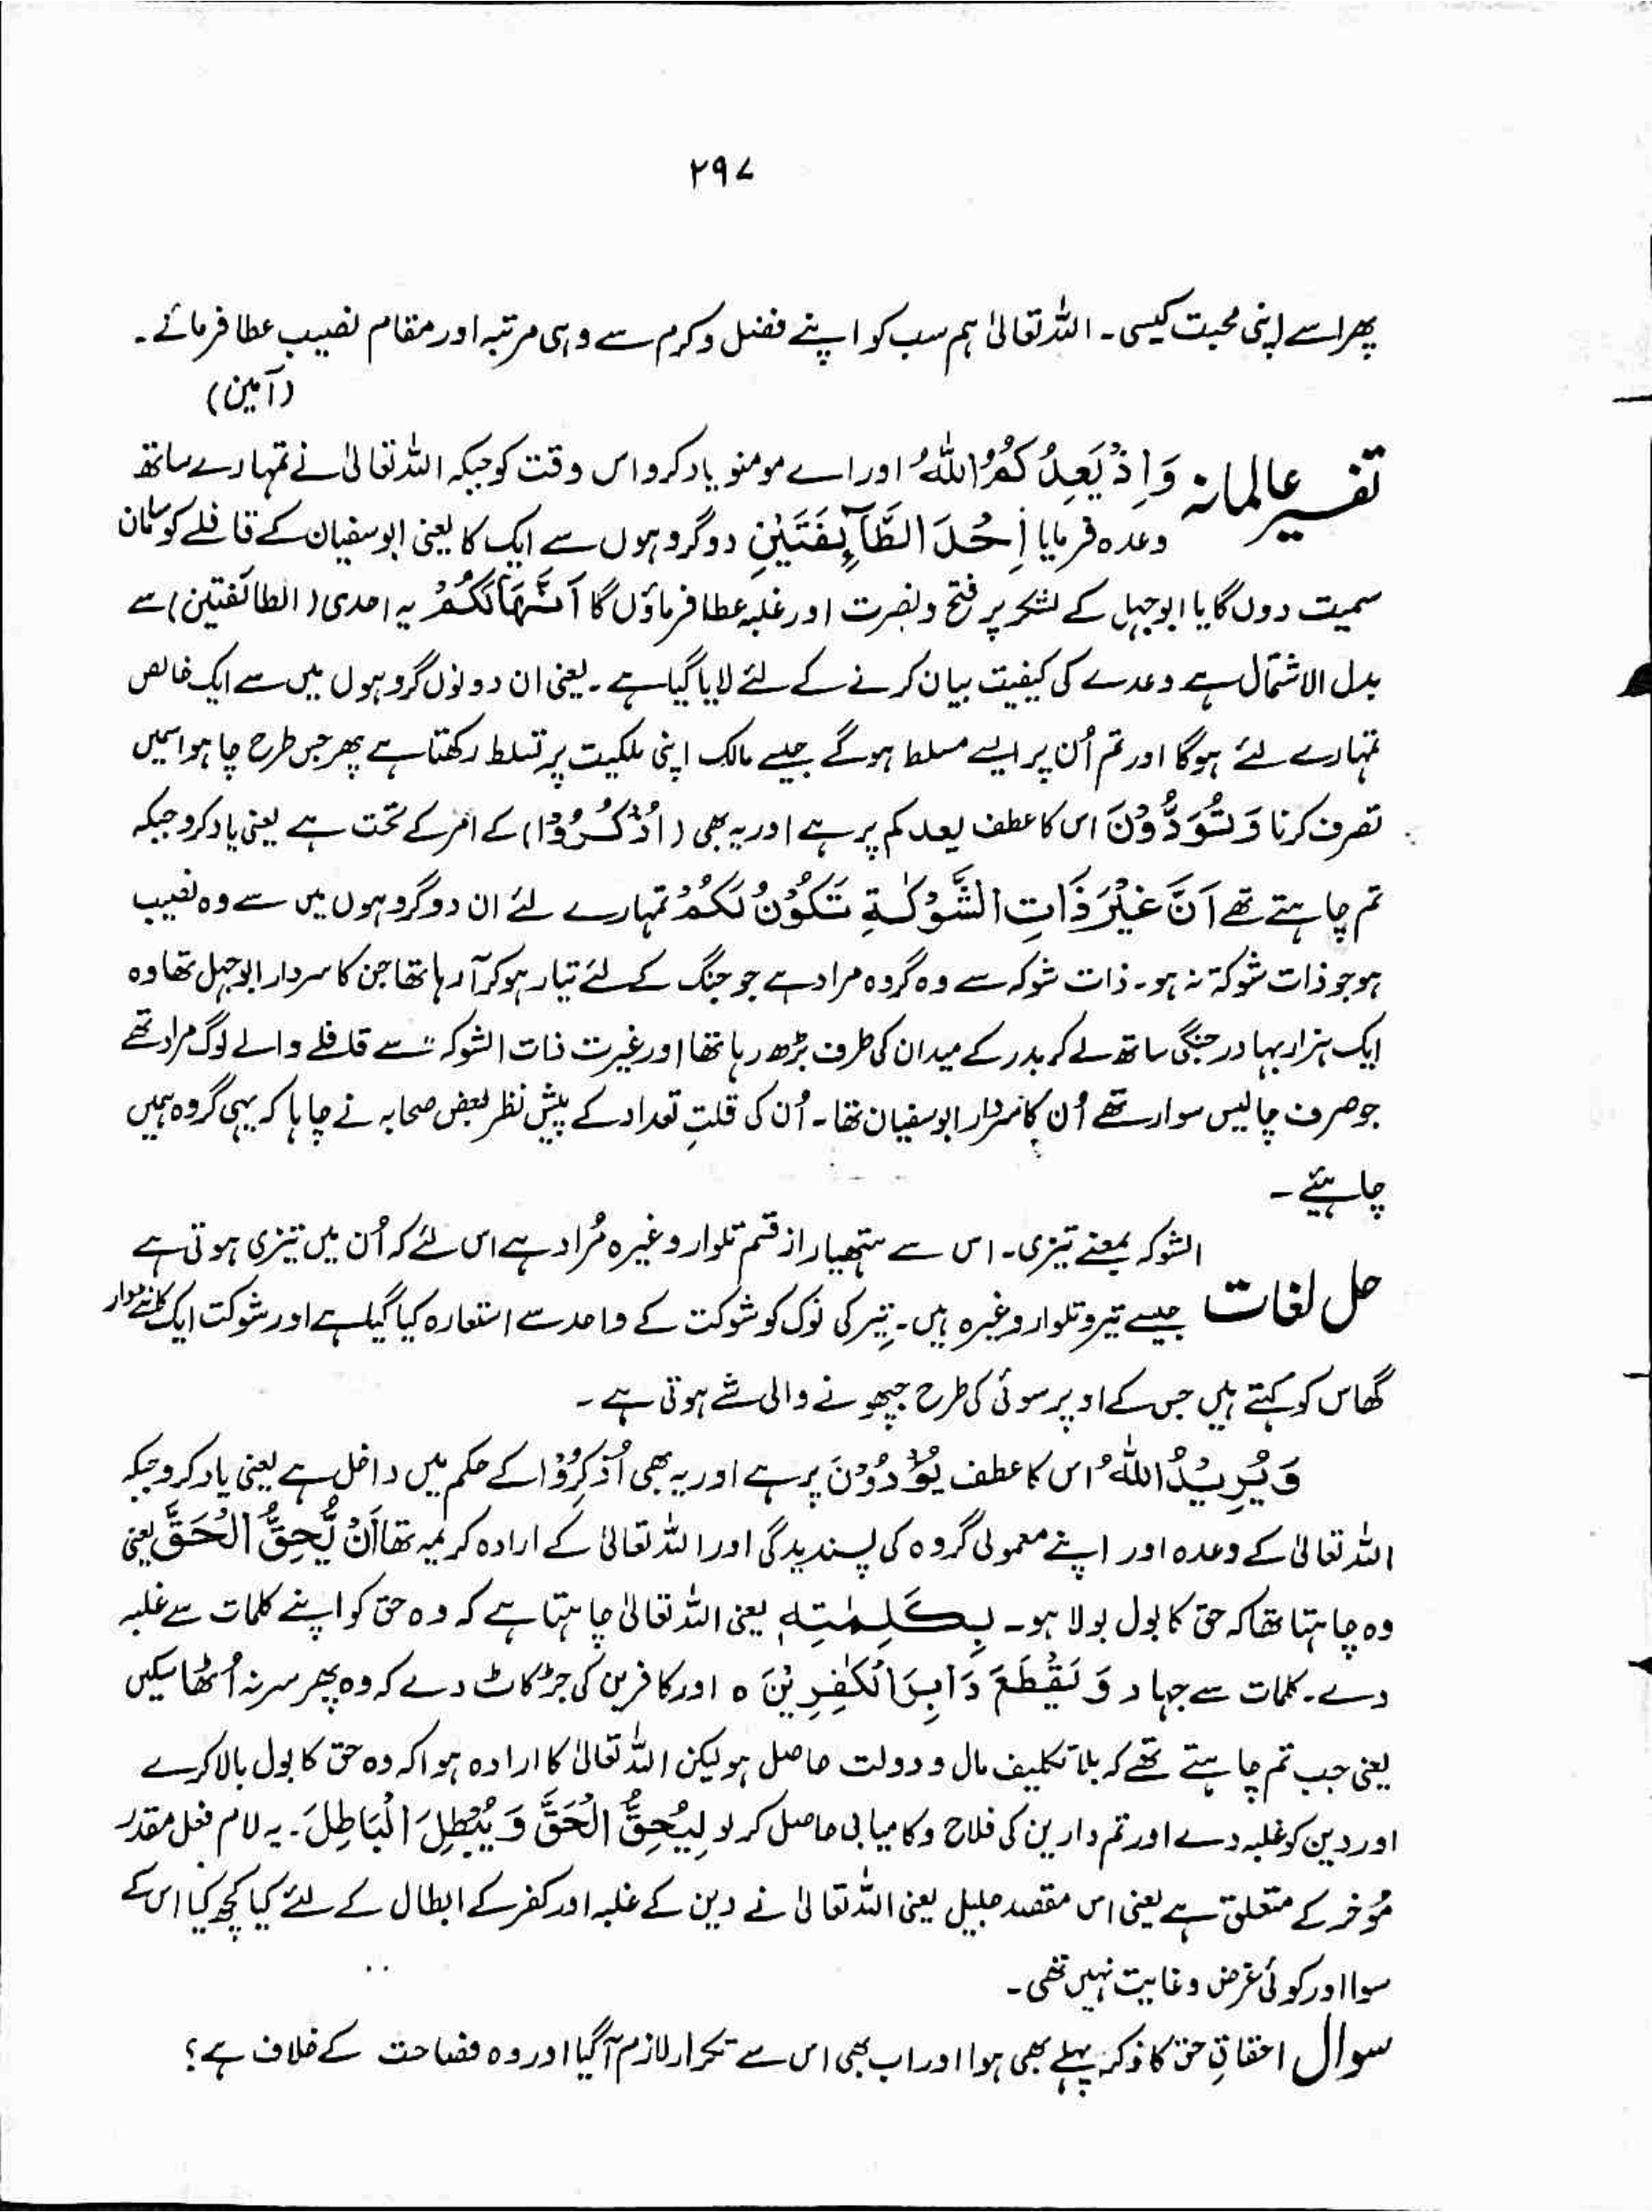 ۲۹۷
پھر اسے اپنی محبت کیسی۔ اللہ تعالیٰ ہم سب کو اپنے فضل و کرم سے وہی مرتبہ اور مقام نصیب عطا فرمائے۔
(آمین)
تفسیر عالمانہ وَاِذْ یَعِدُ کُمُ اللّٰہُ اور اے مومنو یاد کرو اس وقت کو جبکہ اللہ تعالیٰ نے تمہارے ساتھ
وعدہ فرمایا اِحْدَ الطَّآئِفَتَیْنِ دو گروہوں سے ایک کا یعنی ابوسفیان کے قافلے کو سامان
سمیت دوں گا یا ابوجہل کے لشکر پر فتح و نصرت اور غلبہ عطا فرماؤں گا اَنَّھَا لَکُمْ یہ احدی (الطائفتین) سے
بدل الاشتمال ہے وعدے کی کیفیت بیان کرنے کے لئے لایا گیا ہے۔ یعنی ان دونوں گروہوں میں سے ایک خالص
تمہارے لئے ہوگا اور تم اُن پر ایسے مسلط ہوگے جیسے مالک اپنی ملکیت پر تسلط رکھتا ہے پھر جس طرح چاہو اسمیں
تصرف کرنا وَ تَوَدُّوْنَ اس کا عطف یعد کم پر ہے اور یہ بھی (اُذْکُرُوْا) کے امر کے تحت ہے یعنی یاد کرو جبکہ
تم چاہتے تھے اَنَّ غَیْرَ ذَاتِ الشَّوْکَۃِ تَکُوْنُ لَکُمْ تمہارے لئے ان دو گروہوں میں سے وہ نصیب
ہو جو ذات شوکۃ نہ ہو۔ ذات شوکہ سے وہ گروہ مراد ہے جو جنگ کے لئے تیار ہو کر آ رہا تھا جن کا سردار ابوجہل تھا وہ
ایک ہزار بہادر جنگی ساتھ لے کر بدر کے میدان کی طرف بڑھ رہا تھا اور غیرت ذات الشوکہ سے قافلے والے لوگ مراد تھے
جو صرف چالیس سوار تھے اُن کا سردار ابوسفیان تھا۔ اُن کی قلتِ تعداد کے پیش نظر بعض صحابہ نے چاہا کہ یہی گروہ ہمیں
چاہیئے۔
حل لغات الشوکہ بمعنے تیزی۔ اس سے ہتھیار از قسم تلوار وغیرہ مُراد ہے اس لئے کہ اُن میں تیزی ہوتی ہے
جیسے تیر و تلوار وغیرہ ہیں۔ تیر کی نوک کو شوکت کے واحد سے استعارہ کیا گیا ہے اور شوکت ایک کانٹے دار
گھاس کو کہتے ہیں جس کے اوپر سوئی کی طرح چبھونے والی شے ہوتی ہے۔
وَیُرِیْدُ اللّٰہُ اس کا عطف یُؤَدُوْنَ پر ہے اور یہ بھی اُذْکُرُوْا کے حکم میں داخل ہے یعنی یاد کرو جبکہ
اللہ تعالیٰ کے وعدہ اور اپنے معمولی گروہ کی پسندیدگی اور اللہ تعالیٰ کے ارادہ کریمہ تھا اَنْ یُّحِقَّ الْحَقَّ یعنی
وہ چاہتا تھا کہ حق کا بول بولا ہو۔ بِکَلِمٰتِہٖ یعنی اللہ تعالیٰ چاہتا ہے کہ وہ حق کو اپنے کلمات سے غلبہ
دے۔ کلمات سے جہاد وَ یَقْطَعَ دَابِرَ الْکٰفِرِیْنَ ہ اور کافرین کی جڑ کاٹ دے کہ وہ پھر سر نہ اُٹھا سکیں
یعنی جب تم چاہتے تھے کہ بلا تکلیف مال و دولت حاصل ہو لیکن اللہ تعالیٰ کا ارادہ ہوا کہ وہ حق کا بول بالا کرے
اور دین کو غلبہ دے اور تم دارین کی فلاح و کامیابی حاصل کر لو لِیُحِقَّ الْحَقَّ وَ یُبْطِلَ الْبَاطِلَ۔ یہ لام فعل مقدر
مُوخر کے متعلق ہے یعنی اس مقصد جلیل یعنی اللہ تعالیٰ نے دین کے غلبہ اور کفر کے ابطال کے لئے کیا کچھ کیا اس کے
سوا اور کوئی غرض و غایت نہیں تھی۔
سوال احقاقِ حق کا ذکر پہلے بھی ہوا اور اب بھی اس سے تکرار لازم آگیا اور وہ فصاحت کے خلاف ہے؟